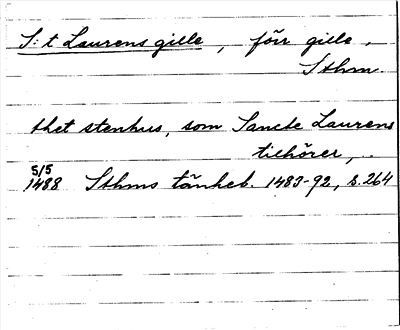 S:t Laurens gille, förr gille,
Sthm.
thet stenhus, som Sancte Laurens
tilhörer,..
5/5
1488 Sthms tänkeb. 1483-92, s. 264